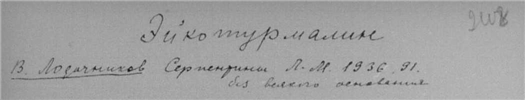 Эйкотурмалин
В. Лодочников Серпентины Л-М. 1936, 91.
без всякого основания